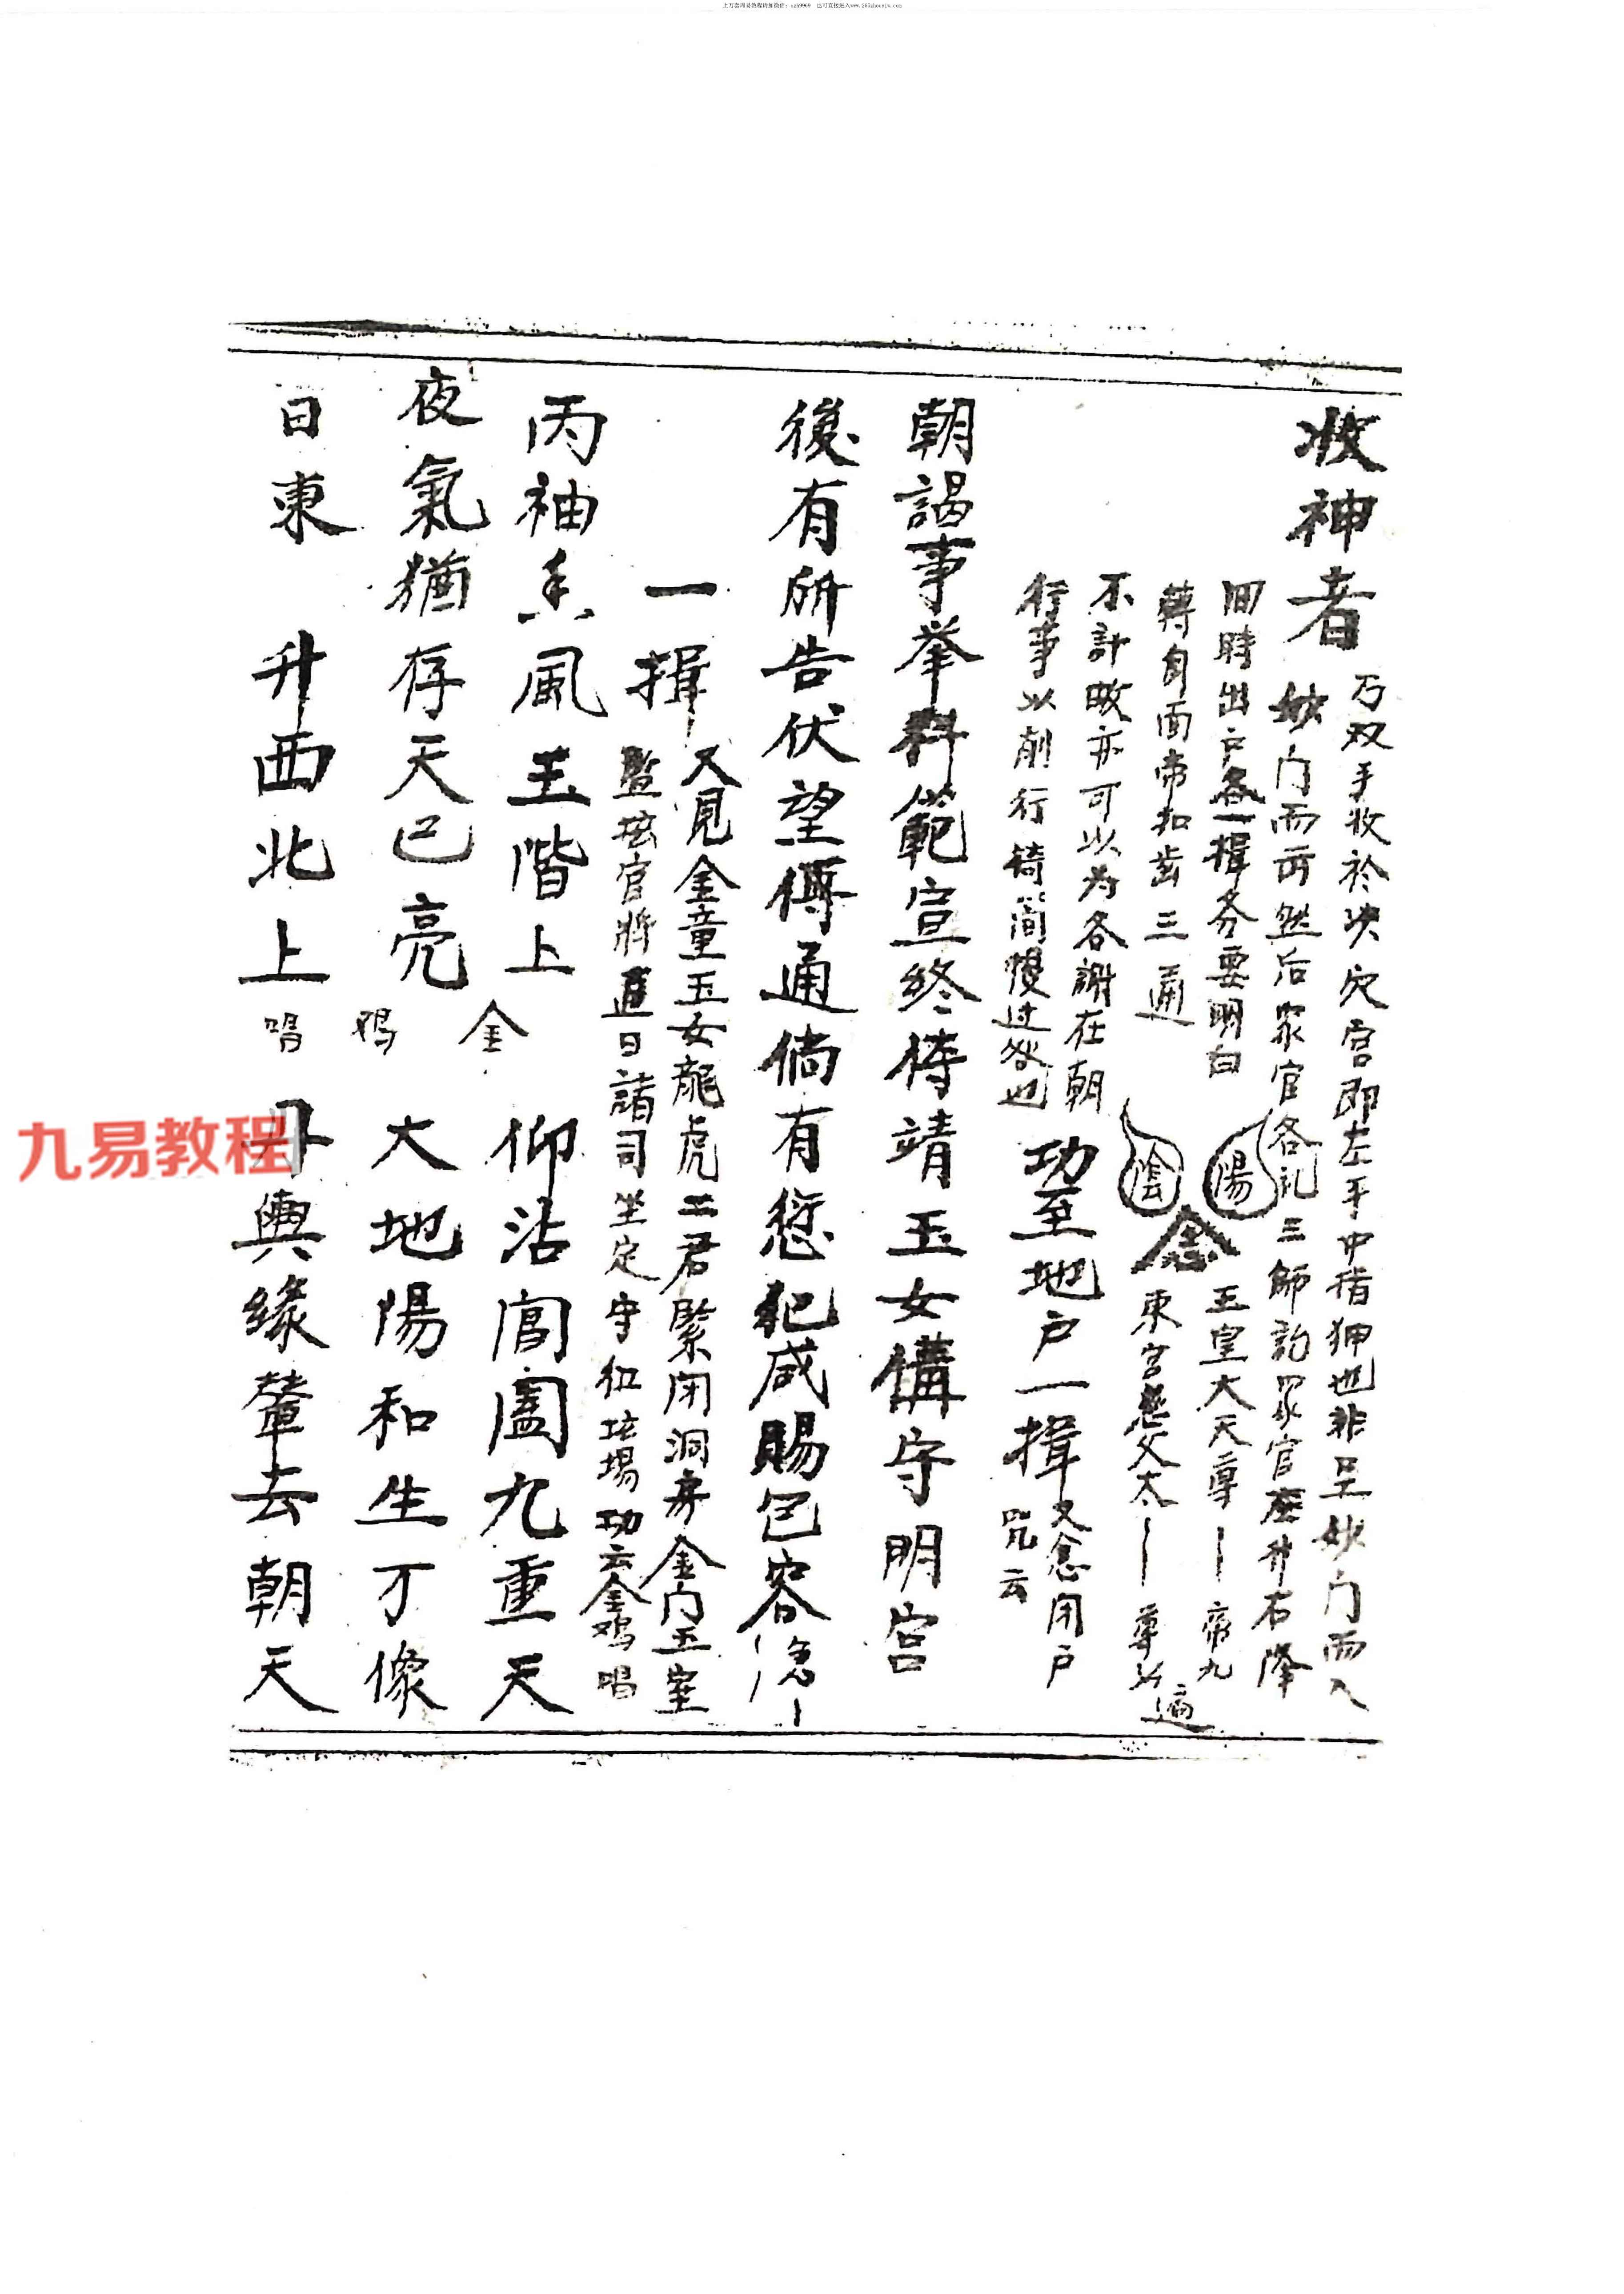 上万套周易教程请加微信：sxh9969 也可直接进入www.265zhouyiw.com
收神者
乃双手收於决穴宫即左手中指狎也非呈妙门而入
妙门而而然后众官各礼三師訖众官座升右降
囬時出户各一揖务要明白
轉身面帝扣齿三通
陽 陰
念
玉皇大天尊丨帝九
東宫慈父太丨尊並遍
不計畋亦可以为各謝在朝
行事以削行錡簡慢过愆也
功至地户一揖
又念闭户
咒云
朝謁事举科範宣終侍靖玉女備守明宫
後有所告伏望傳通倘有愆犯咸賜包容急丨
一揖
又見金童玉女龍虎二君緊闭洞房金门玉室
監坛官將直日諸司坐定守衵坛場功云金鸡唱
丙袖香風玉階上 仰沾閶阖九重天
夜氣猶存天已亮 大地陽和生万像
日東升西北上 丹輿緣輦去朝天
金鸡唱
九易教程